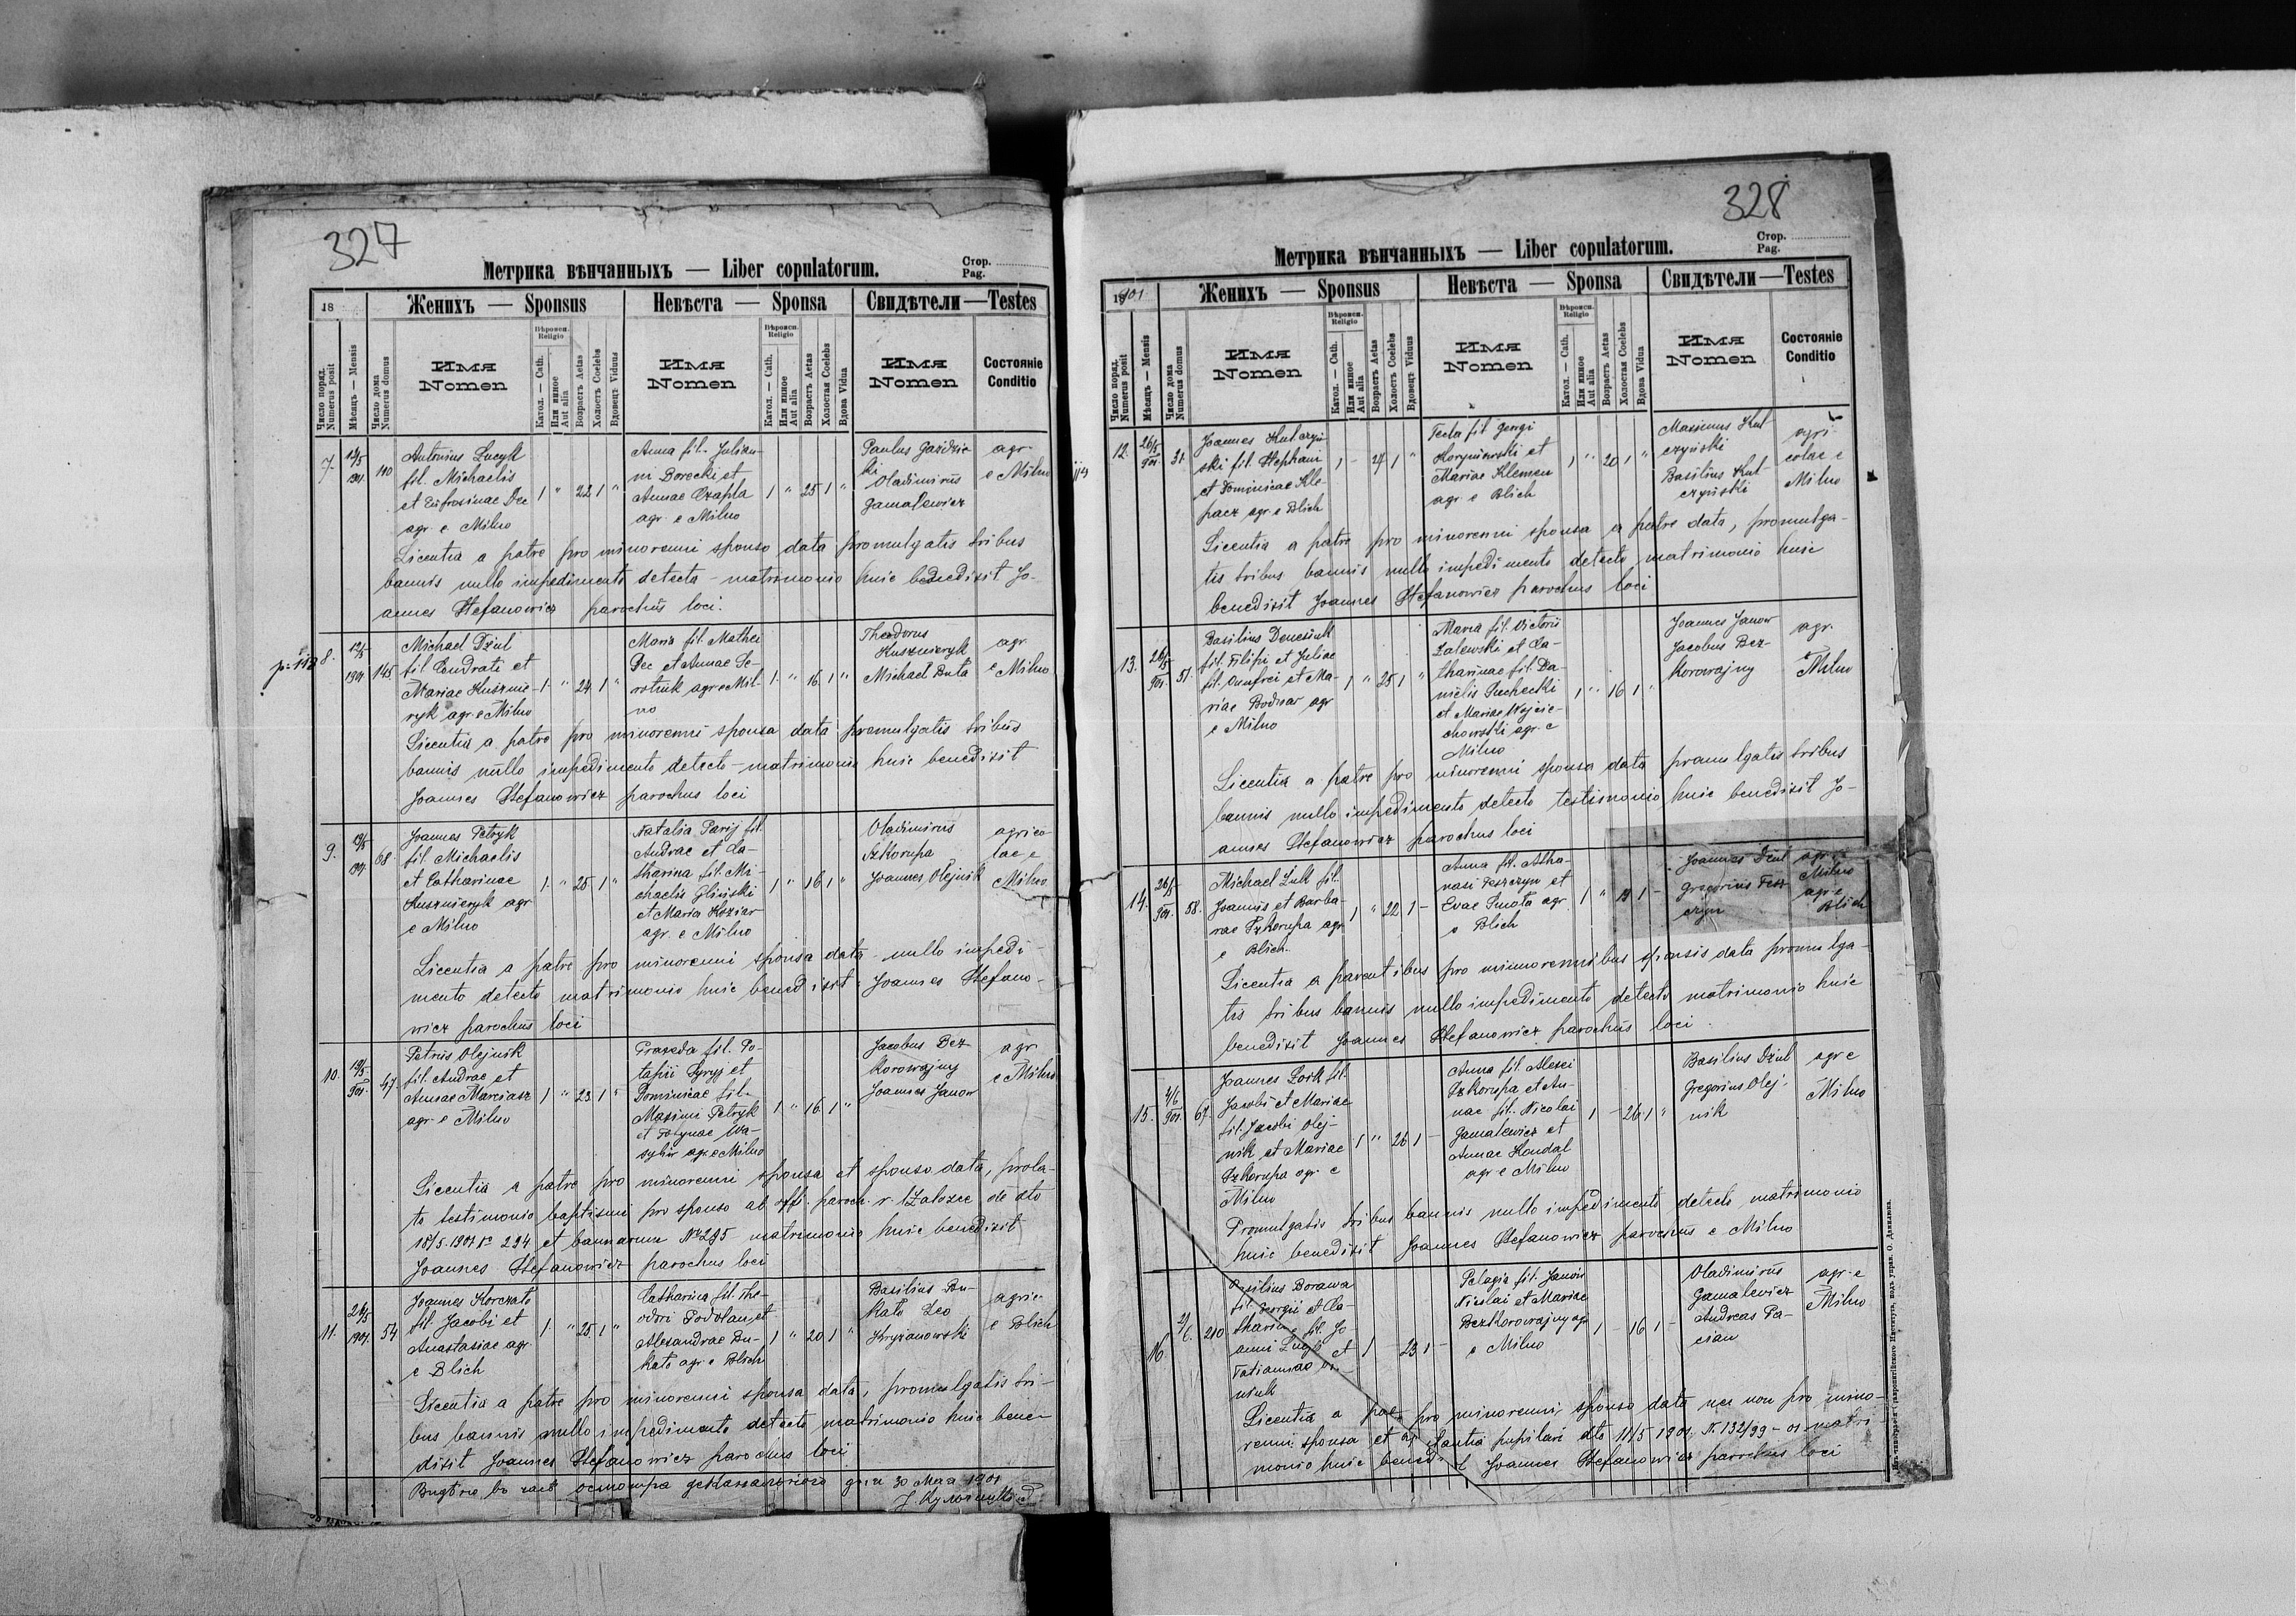 327
Метрика вѣнчанныхъ — Liber copulatorum.
Стор.
Pag.
18
Женихъ — Sponsus
Невѣста — Sponsa
Свидѣтели — Testes
Число поряд. Numerus posit
Мѣсяцъ — Mensis
Число дома Numerus domus
Имя Nomen
Вѣроисп. Religio
Катол. — Cath.
Или инное Aut alia
Возрастъ Aetas
Холостъ Coelebs
Вдовецъ Viduus
Имя Nomen
Вѣроисп. Religio
Катол. — Cath.
Или инное Aut alia
Возрастъ Aetas
Холостая Coelebs
Вдова Vidua
Имя Nomen
Состояніе Conditio
7. 12/5 1901. 110
Antonius Lucyk
fil. Michaelis
et Eufrosinae Dec
agr. e Milno
1 " 22 1 "
Anna fil. Julia-
ni Borecki et
Annae Czapla
agr. e Milno
1 " 25 1 "
Paulus Gaździc
ki
Vladimirus
Gamalewicz
agr.
e Milno
Licentia a patre pro minorenni sponso data promulgatis tribus
bannis nullo impedimento detecto – matrimonio huic benedixit Jo-
annes Stefanowicz parochus loci.
8. 12/5 1901. 145
Michael Dziul
fil. Condrati et
Mariae Kusznie-
ryk agr. e Milno
1 " 24 1 "
Maria fil. Mathei
Dec et Annae Se-
rotiuk agr. e Mil-
no
1 " 16 1 "
Theodorus
Kusznieryk
Michael Buta
agr.
e Milno
Licentia a patre pro minorenni sponsa data promulgatis tribus
bannis nullo impedimento detecto – matrimonio huic benedixit
Joannes Stefanowicz parochus loci
9. 19/5 1901. 68
Joannes Petryk
fil. Michaelis
et Catharinae
Kusznieryk agr
e Milno
1. " 25 1 "
Natalia Parij fil.
Andrae et Ca-
tharina fil. Mi-
chaelis Gliński
et Maria Koziar
agr. e Milno
1 " 16 1 "
Vladimirus
Szkorupa
Joannes Olejnik
agrico
lae e
Milno
Licentia a patre pro minorenni sponsa data – nullo impedi-
mento detecto matrimonio huic benedixit Joannes Stefano-
wicz parochus loci
10. 19/5 901. 47
Petrus Olejnik
fil. Andrae et
Annae Marciasz
agr. e Milno
1 " 23 1 "
Praxeda fil. Po-
tapii Pyryj et
Dominicae fil.
Maximi Petryk
et Wa-
sylin agr. e Milno
1 " 16 1 "
Jacobus Bez-
korowajny
Joannes Janow
agr
e Milno
Licentia a patre pro minorenni sponsa et sponso data, prola-
to testimonio baptismi pro sponso ab offi. paroch. r. l. Załozce de dto
18/5 1901 № 294 et bannorum № 295 matrimonio huic benedixit
Joannes Stefanowicz parochus loci
11. 26/5 1901. 54
Joannes Korczato
fil. Jacobi et
Anastasiae agr.
e Blich
1 " 25 1 "
Catharina fil. The-
odori Podolan et
Alexandrae Du-
kato agr. e Blich
1 " 20 1 "
Basilius Du-
kato Leo
Hryzanowski
agric.
e Blich
Licentia a patre pro minorenni sponsa data, promulgatis tri-
bus bannis nullo impedimento detecto matrimonio huic bene-
dixit Joannes Stefanowicz parochus loci.
Видѣно во часѣ осмотра деканального дня 30 Мая 1901
328
Метрика вѣнчанныхъ — Liber copulatorum.
Стор.
Pag.
1901
Женихъ — Sponsus
Невѣста — Sponsa
Свидѣтели — Testes
Число поряд. Numerus posit
Мѣсяцъ — Mensis
Число дома Numerus domus
Имя Nomen
Вѣроисп. Religio
Катол. — Cath.
Или инное Aut alia
Возрастъ Aetas
Холостъ Coelebs
Вдовецъ Viduus
Имя Nomen
Вѣроисп. Religio
Катол. — Cath.
Или инное Aut alia
Возрастъ Aetas
Холостая Coelebs
Вдова Vidua
Имя Nomen
Состояніе Conditio
12. 26/5 901. 31
Joannes Kutczyń
ski fil. Stephani
et Dominicae Kle-
pacz agr. e Blich
1 – 24 1 "
Tecla fil. Georgi
Horyniowski et
Mariae Klemen
agr. e Blich
1 " 20 1 "
Maximus Kut
czyński
Basilius Kut-
czyński
agri-
colae e
Milno
Licentia a patre pro minorenni sponsa a patre data, promulga-
tis tribus bannis nullo impedimento detecto matrimonio huic
benedixit Joannes Stefanowicz parochus loci
13. 26/5 901. 51.
Basilius Denesiuk
fil. Filipi et Juliae
fil. Onufrei et Ma-
riae Bodnar agr
e Milno
1 " 25 1 "
Maria fil. Victorii
Zalewski et Ca-
tharinae fil. Da-
nielis Puchecki
et Mariae Wojcie-
chowski agr. e
Milno
1 " 16 1 "
Joannes Janow
Jacobus Bez-
korowajny
agr.
e Milno
Licentia a patre pro minorenni sponsa data promulgatis tribus
bannis nullo impedimento detecto testimonio huic benedixit Jo-
annes Stefanowicz parochus loci
14. 26/5 901. 58.
Michael Luk fil.
Joannis et Barba-
rae Szkorupa agr
e Blich.
1 " 22 1 –
Anna fil. Atha-
nasi Feszczyn et
Evae Smota agr
e Blich
1 " 19 1 –
Joannes Dziul
Gregorius Fesz
czyn
agr. e
Milno
agr. e
Blich
Licentia a parentibus pro minorennibus sponsis data promulga-
tis tribus bannis nullo impedimento detecto matrimonio huic
benedixit Joannes Stefanowicz parochus loci.
15. 4/6 901. 67.
Joannes Zoik fil.
Jacobi et Mariae
fil. Jacobi Olej-
nik et Mariae
Szkorupa agr. e
Milno
1 " 26 1 –
Anna fil. Alexei
Szkorupa et An-
nae fil. Nicolai
Gamalewicz et
Annae Kondal
agr. e Milno
1 – 26 1 "
Basilius Dziul
Gregorius Olej-
nik
agr e
Milno
Promulgatis tribus bannis nullo impedimento detecto matrimonio
huic benedixit Joannes Stefanowicz parochus e Milno
16 2/6. 210
Basilius Borawa
fil. Georgii et Ca-
tharinae fil. Jo-
anni et
Tatiannae
1 23 1 –
Pelagia fil. Janow
Nicolai et Mariae
Bezkorowajny agr
e Milno
1 – 16 1 –
Vladimirus
Gamalewicz
Andreas Pa-
cian
agr. e
Milno
Licentia a pro minorenni sponso data nec non pro mino-
renni sponsa et pupilari dto 11/5 1901. N. 132/99 – 01 matri-
monio huic benedixit Joannes Stefanowicz parochus loci